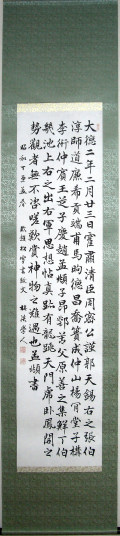 大德二年二月廿三日霍肅清臣周密公謹郭天錫右之張伯
淳師道廉希貢端甫馬昫德昌喬簣成仲山楊肯堂子構
李衎仲賓王芝子慶趙孟頫子昂鄧文原善之集鮮于伯
幾池上右之出右軍思想帖真跡有龍跳天門虎卧鳳閣之
勢觀者無不咨嗟歎賞神物之難遇也孟頫書
昭和丁卯孟春 臨趙松雪書跋文 學人